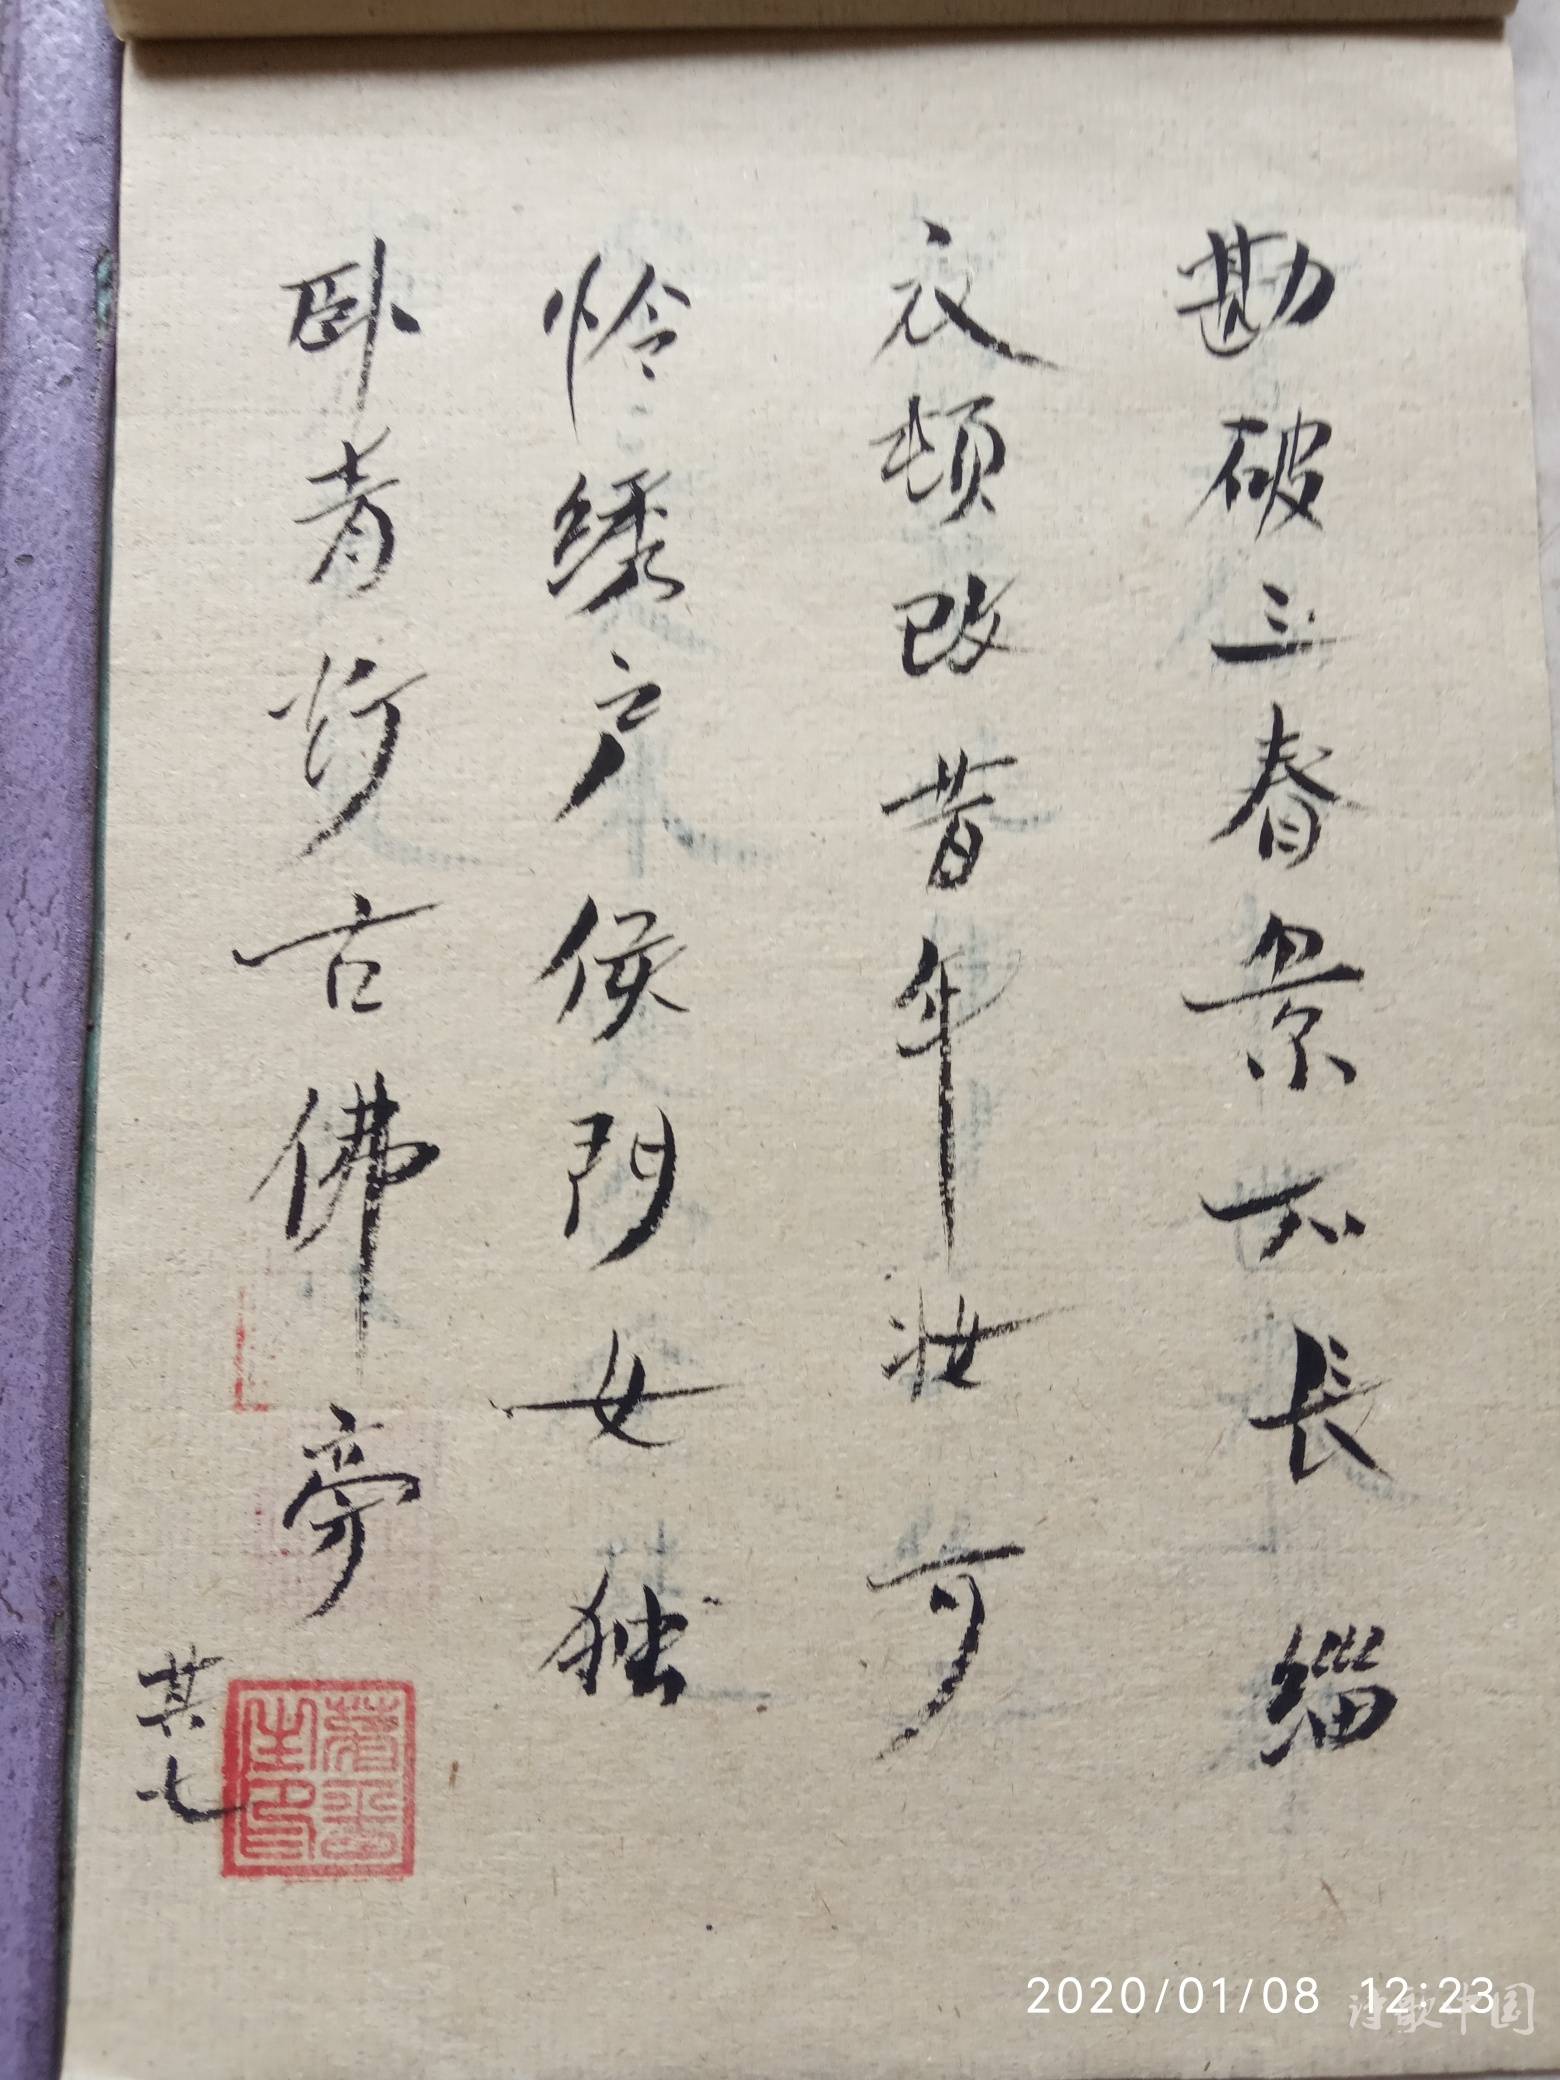 勘破三春景不长缁
衣顿改昔年妆可
怜绣户侯门女独
卧青灯古佛旁
其七
2020/01/08 12:23
诗歌中国